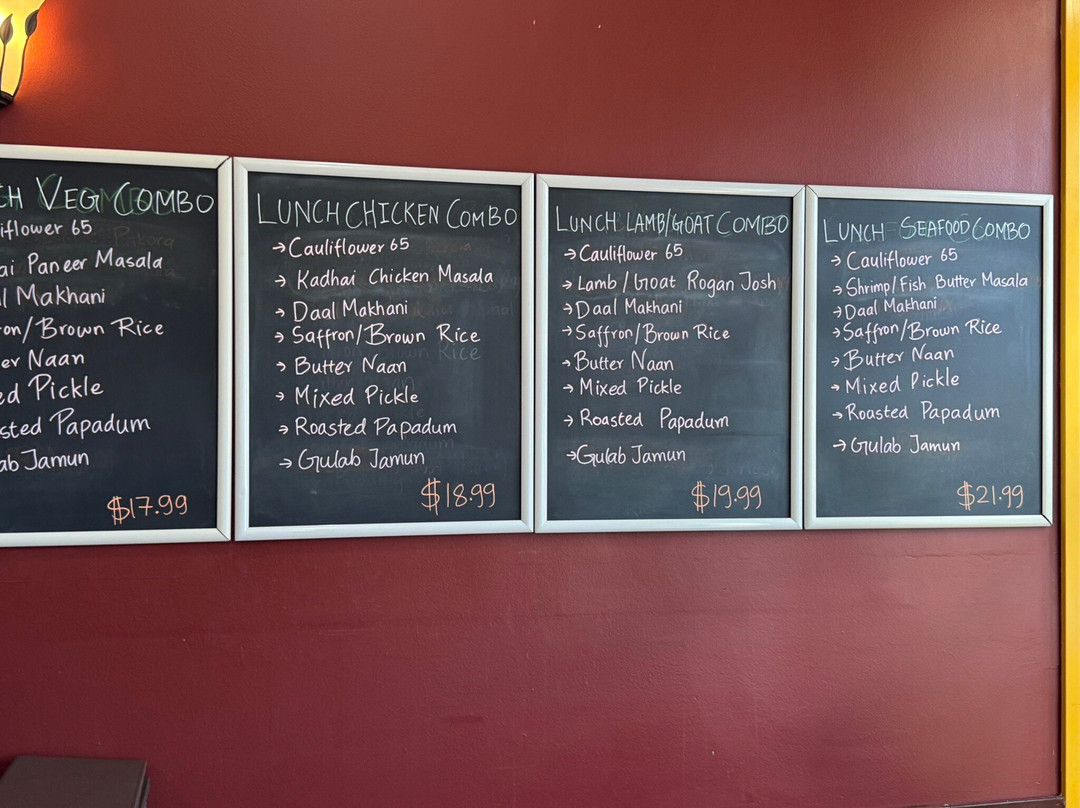 CH VEG COMBO
iflower 65
ai Paneer Masala
l Makhani
on/Brown Rice
er Naan
ed Pickle
sted Papadum
ab Jamun
$17.99
LUNCH CHICKEN COMBO
→ Cauliflower 65
→ Kadhai Chicken Masala
→ Daal Makhani
→ Saffron/Brown Rice
→ Butter Naan
→ Mixed Pickle
→ Roasted Papadum
→ Gulab Jamun
$18.99
LUNCH LAMB/GOAT COMBO
→ Cauliflower 65
→ Lamb/Goat Rogan Josh
→ Daal Makhani
→ Saffron/Brown Rice
→ Butter Naan
→ Mixed Pickle
→ Roasted Papadum
→ Gulab Jamun
$19.99
LUNCH SEAFOOD COMBO
→ Cauliflower 65
→ Shrimp/Fish Butter Masala
→ Daal Makhani
→ Saffron/Brown Rice
→ Butter Naan
→ Mixed Pickle
→ Roasted Papadum
→ Gulab Jamun
$21.99